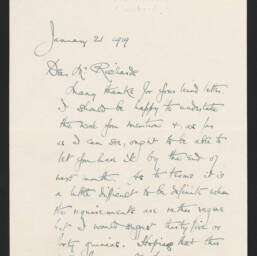 January 21 1919
Dear Mr Richards
Many thanks for your kind letter.
I should be happy to undertake
the work you mention &, as far
as I can see, ought to be able to
let you have it by the end of
next month. As to terms it is
a little difficult to be definite when
the requirements are rather vague
but I would suggest thirty five or
forty guineas. Hoping that this